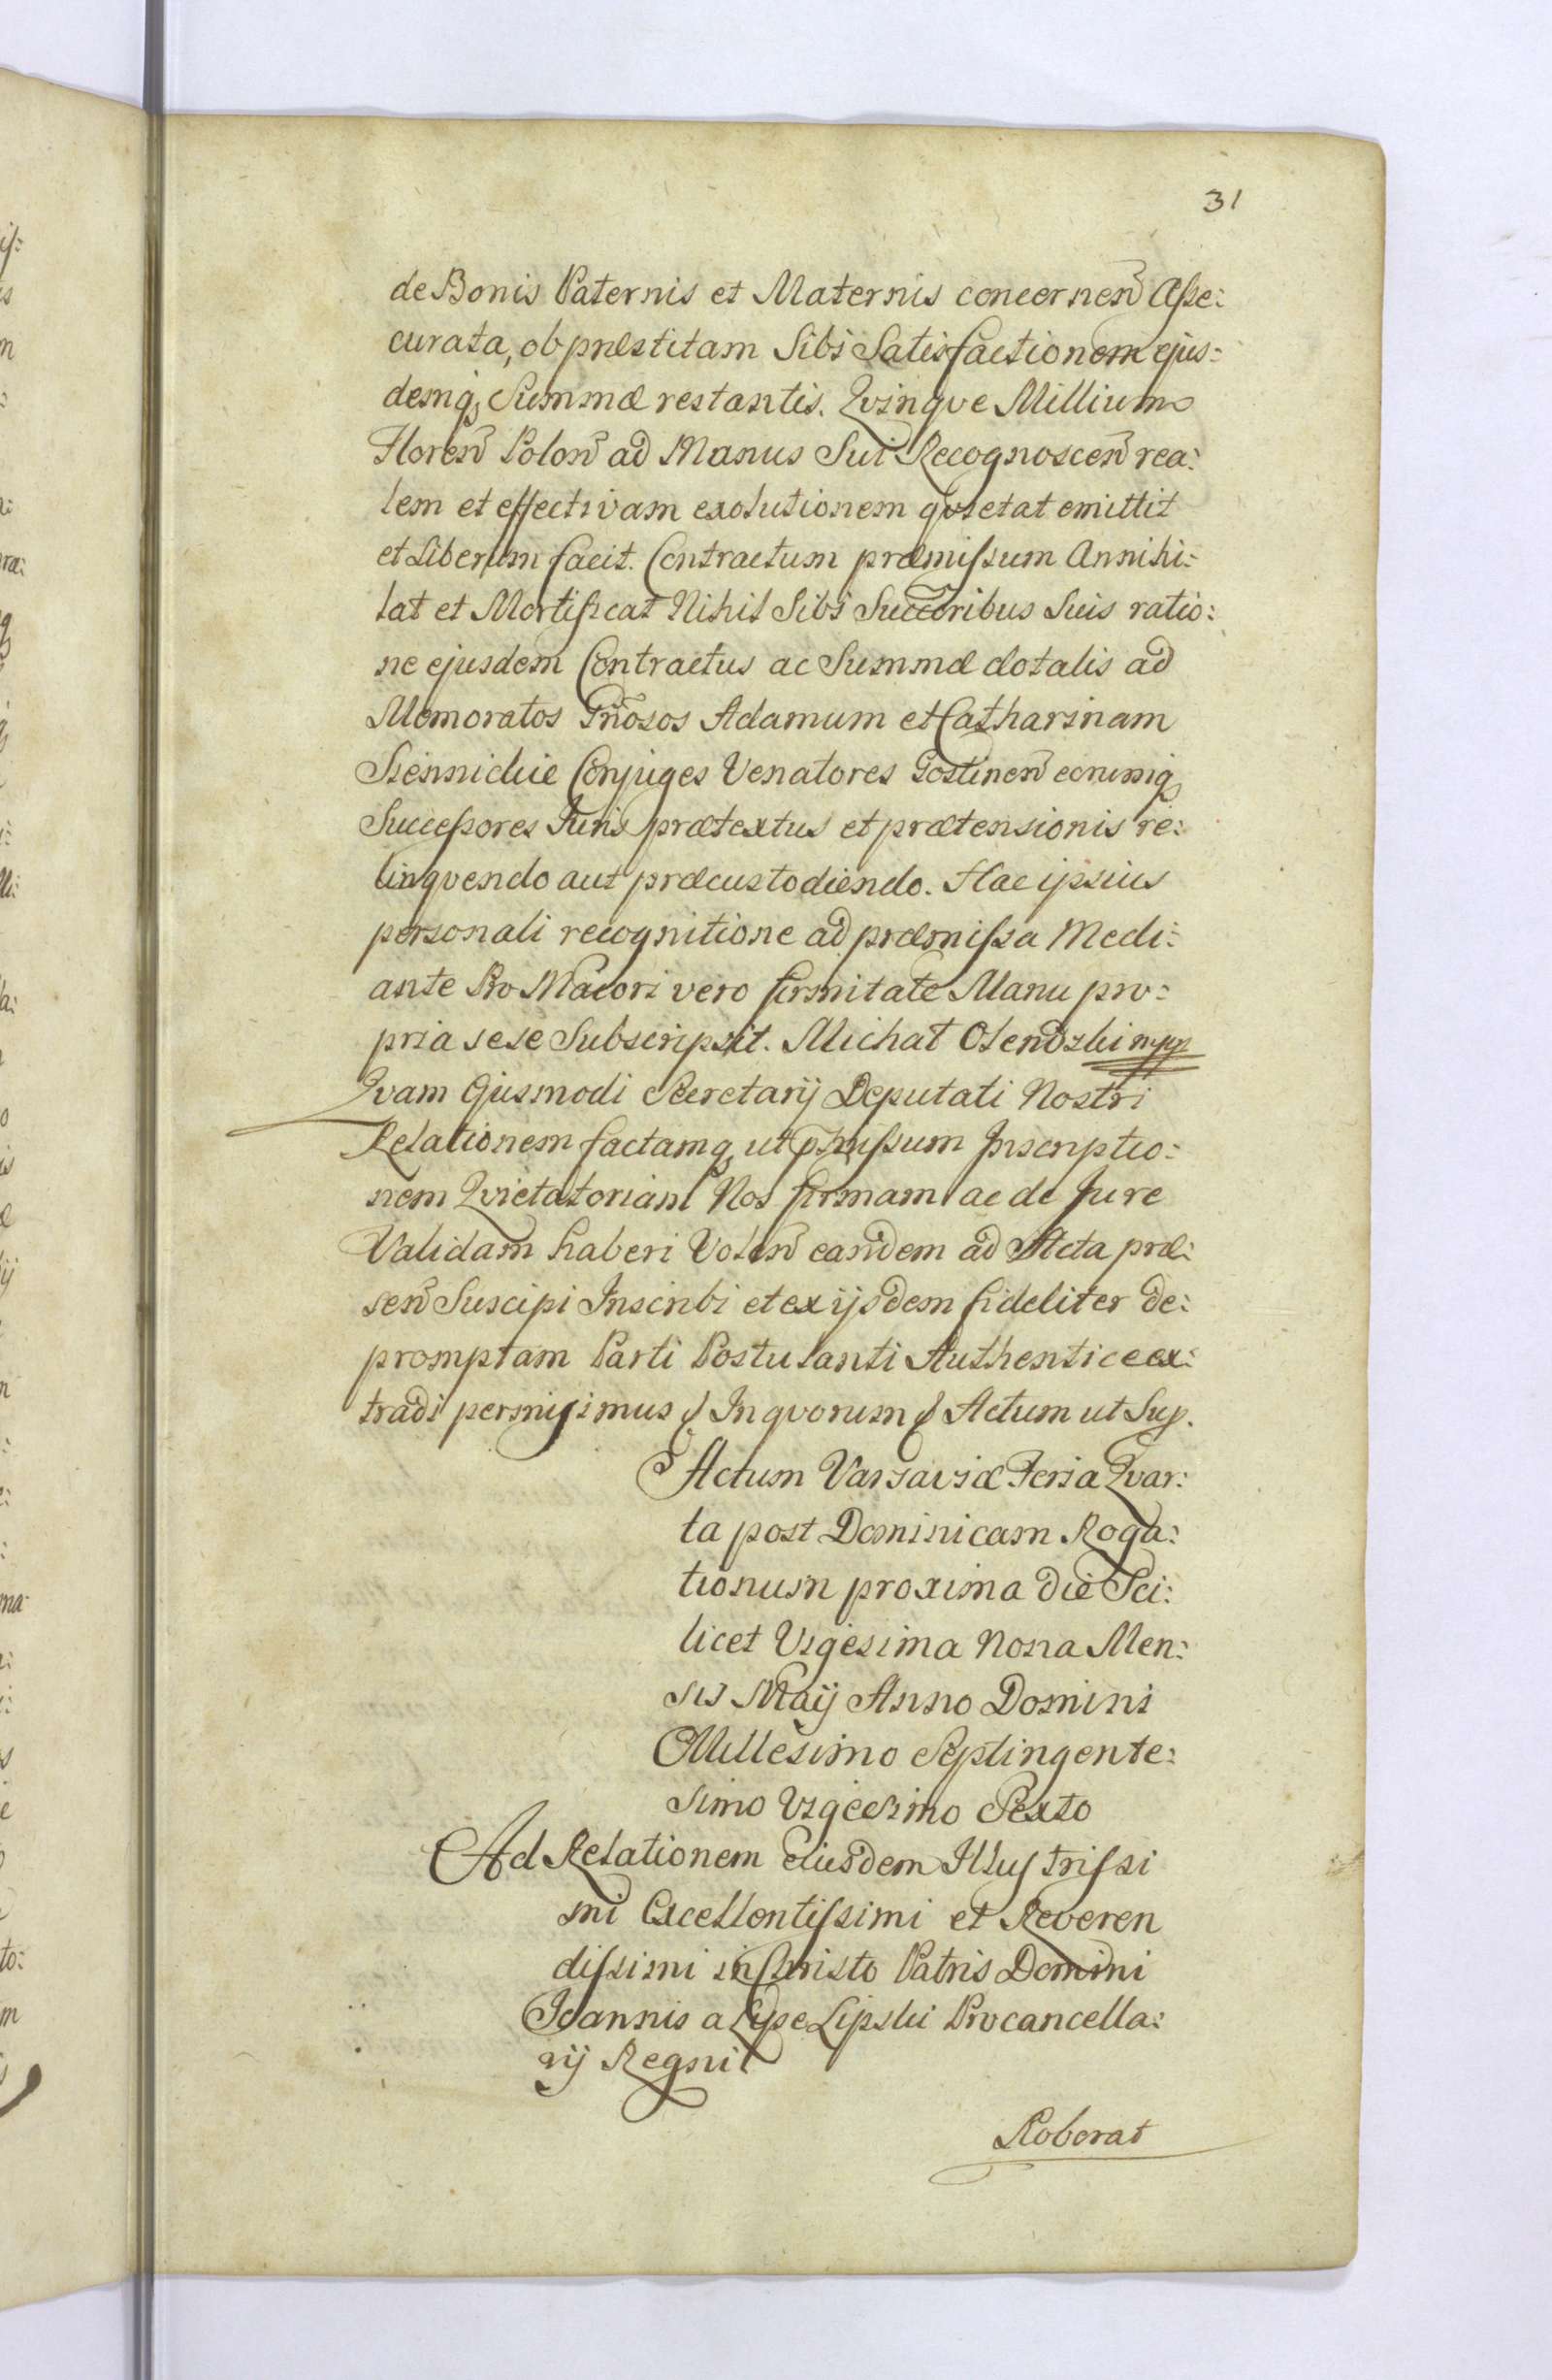 31
de Bonis Paternis et Maternis concernen̄ Asse:
curata, ob præstitam Sibi Satisfactionem ejus:
demq, Summæ restantis. Qvinqve Millium
Floren̄ Polon̄ ad Manus Sui Recognoscen̄ rea:
lem et effectivam exolutionem qvietat emittit
et Liberum facit. Contractum præmissum Annihi:
lat et Mortificat Nihil Sibi Succoribus Suis ratio:
ne ejusdem Contractus ac Summæ dotalis ad
Memoratos Gn̄osos Adamum et Catharinam
Conjuges Venatores Gostinen̄ eorumq,
Successores Juris prætextus et prætensionis re:
linqvendo aut præcustodiendo. Hac ipsius
personali recognitione ad præmissa Medi:
ante Pro Maiori vero firmitate Manu pro:
pria sese Subscripsit. Michał Olendzki mpp
Qvam Ejusmodi Secretarij Deputati Nostri
Relationem factamq, ut p̄missum Inscriptio:
nem Qvietatoriam Nos firmam ac de Jure
Validam haberi Volen̄ eandem ad Acta præ:
sen̄ Suscipi Inscribi et ex ijsdem fideliter de:
promptam Parti Postulanti Authentice ex:
tradi permisimus & In qvorum & Actum ut Sup.
Actum Varsaviæ Feria Qvar:
ta post Dominicam Roga:
tionum proxima die Sci:
licet Vigesima Nona Men:
sis Maij Anno Domini
Millesimo Septingente:
simo Vigesimo Sexto
Ad Relationem eiusdem Illustrissi
mi Excellentissimi et Reveren
dissimi in Christo Patris Domini
Joannis a Lipe Lipski Procancella:
rij Regni
Roborat